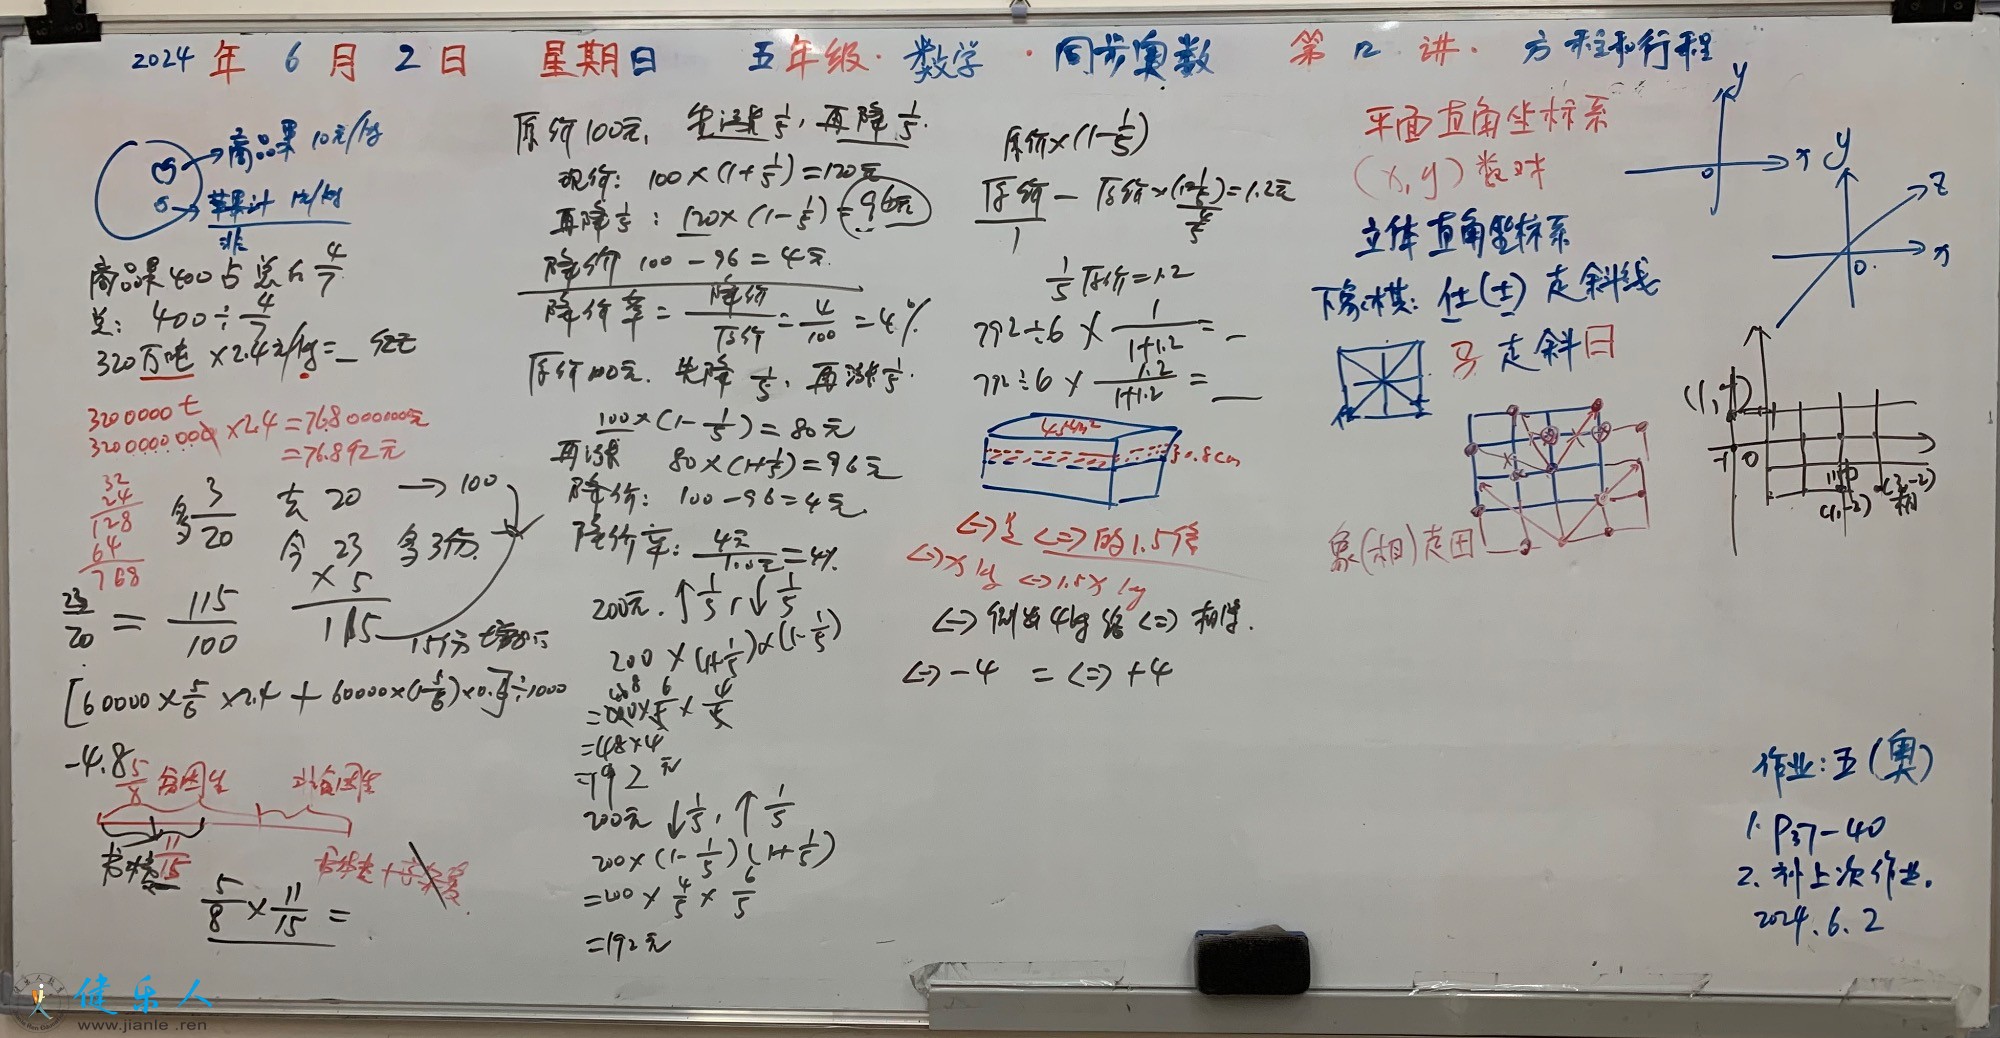 2024 年 6 月 2 日 星期日 五年级·数学·同步奥数 第 12 讲· 方程和行程
商品果 10元/kg
苹果汁
非
商品果400占总的 4/7
总: 400÷4/7
320万吨×2.4元/kg=_亿元
3200000 t
3200000000×2.4=7680000000元
=76.8亿元
32
24
128
64
768
多 3/20 去 20 → 100
今 23 多3份
×5
115
23/20 = 115/100
15份
[60000×5/6×2.4+60000×(1-5/6)×0.8]÷1000
-4.8
5/8 贫困生 非贫困生
11/15
5/8×11/15=
原价100元, 先涨 1/5, 再降 1/5.
现价: 100×(1+1/5)=120元
再降 1/5: 120×(1-1/5)=96元
降价 100-96=4元
降价率=降价/原价=4/100=4%
原价100元. 先降 1/5, 再涨 1/5.
100×(1-1/5)=80元
再涨 80×(1+1/5)=96元
降价: 100-96=4元
降价率: 4元/100元=4%
200元. ↑1/5, ↓1/5
200×(1+1/5)×(1-1/5)
=200×6/5×4/5
=48×4
=192元
200元 ↓1/5, ↑1/5
200×(1-1/5)(1+1/5)
=200×4/5×6/5
=192元
原价×(1-1/5)
原价-原价×(1-1/5)=1.2元
1 4/5
1/5原价=1.2
792÷6×1/(1+1.2)=_
792÷6×1.2/(1+1.2)=_
0.8cm
<->是<=>的1.5倍
<->x kg <=>1.5x kg
<->倒出4kg给<=>相等.
<->-4 = <=>+4
平面直角坐标系
(x,y)数对
立体直角坐标系
下象棋: 仕(士)走斜线
马 走斜日
象(相)走田
y
x
0
y
z
x
0
-1 0
(1,-2)
(3,-2)
相
作业:五(奥)
1. P37-40
2. 补上次作业.
2024.6.2
健乐人
www.jianle.ren